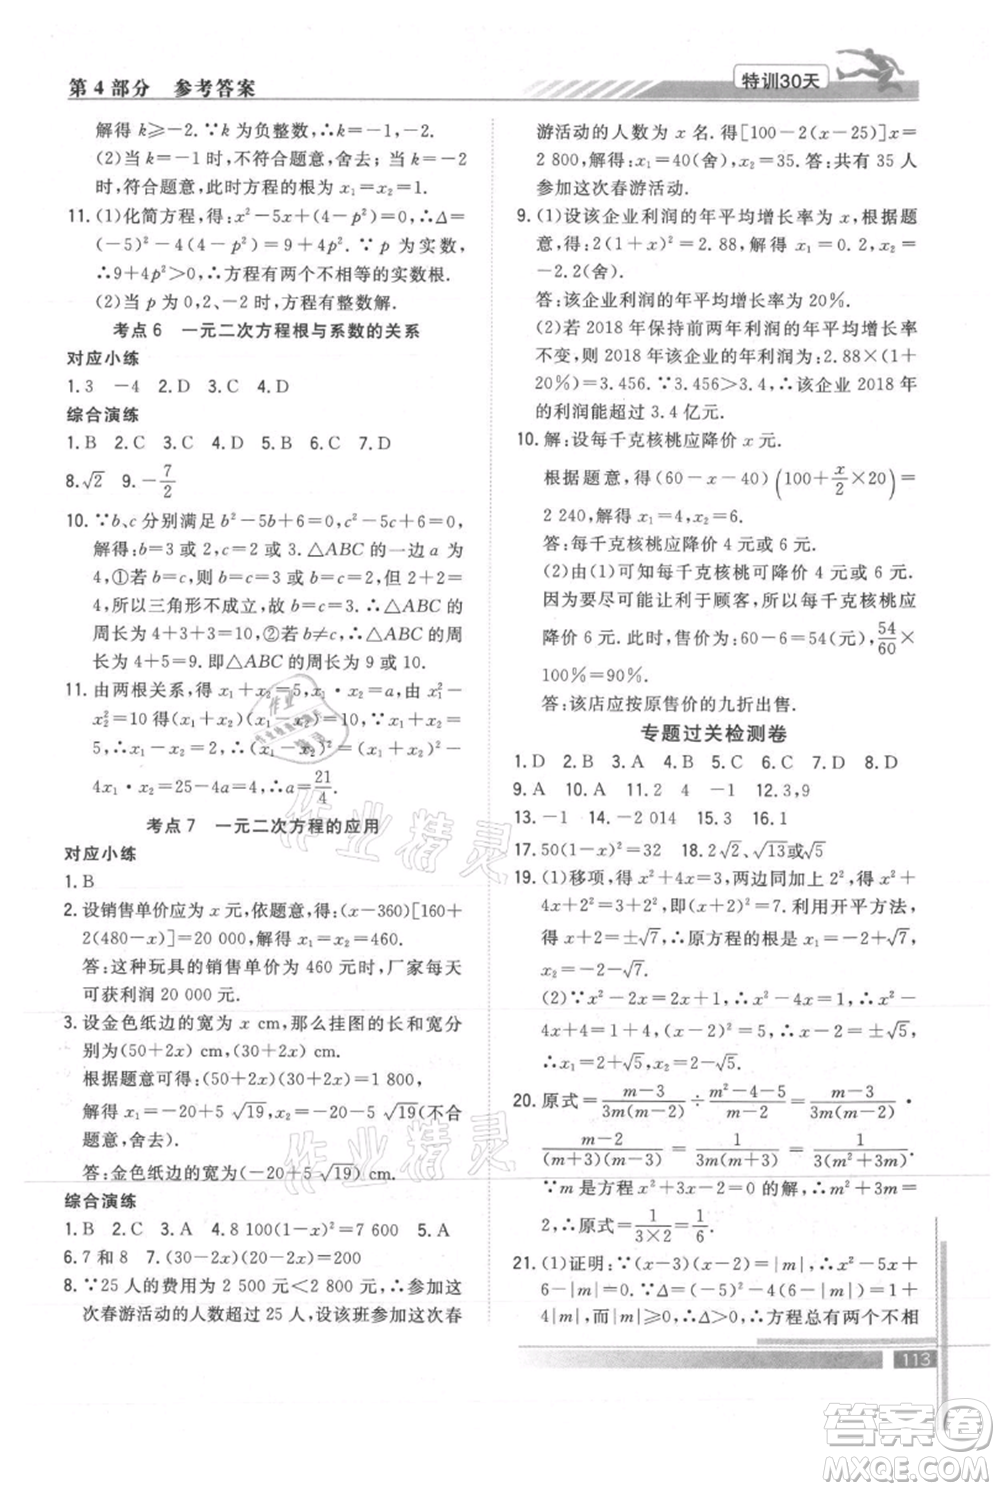 第4部分　参考答案
特训30天
解得 k≥-2. ∵k 为负整数, ∴k=-1, -2.
(2)当 k=-1 时,不符合题意,舍去;当 k=-2
时,符合题意,此时方程的根为 x₁=x₂=1.
11. (1)化简方程,得:x²-5x+4-p²=0,∴Δ=
(-5)²-4(4-p²)=9+4p². ∵ p 为实数,
∴9+4p²>0,∴方程有两个不相等的实数根.
(2)当 p 为0,2,-2 时,方程有整数解.
考点 6　一元二次方程根与系数的关系
对应小练
1. 3　-4　2. D　3. C　4. D
综合演练
1. B　2. C　3. D　4. D　5. B　6. C　7. D
8. √2　9. -7/2
10. ∵b、c 分别满足 b²-5b+6=0,c²-5c+6=0,
解得:b=2或3,c=2或3. △ABC 的一边 a 为
4,①若 b=c,则 b=c=2 或 b=c=3. 但 b=c=2
时,所以三角形不成立,故 b=c=3. ∴△ABC 的
周长为 4+3+3=10,②若b≠c,∴△ABC 的周
长为 4+5=9. 即△ABC 的周长为 9 或 10.
11. 由两根关系,得 x₁+x₂=5,x₁·x₂=a,由 x₁²-
x₂²=10 得(x₁+x₂)(x₁-x₂)=10,若 x₁+x₂=
5,∴x₁-x₂=2,∴(x₁-x₂)²=(x₁+x₂)²-
4x₁·x₂=25-4a=4,∴a=21/4.
考点 7　一元二次方程的应用
对应小练
1. B
2. 设销售单价应为 x 元,依题意,得:(x-360)[160+
2(480-x)]=20 000,解得 x₁=x₂=460.
答:这种玩具的销售单价为 460 元时,厂家每天
可获利润 20 000 元.
3. 设金色纸边的宽为 x cm,那么挂图的长和宽分
别为(50+2x) cm,(30+2x) cm.
根据题意可得(50+2x)(30+2x)=1 800,
解得 x₁=-20+5√19,x₂=-20-5√19(不合
题意,舍去).
答:金色纸边的宽为(-20+5√19) cm.
综合演练
1. B　2. C　3. A　4. 8 100(1-x)²=7 600　5. A
6. 7 和 8　7. (30-2x)(20-x)=200
8. ∵25 人的费用为 2 500 元<2 800 元,∴参加这
次春游活动的人数超过 25 人,设该班参加这次春
游活动的人数为 x 名. 得[100-2(x-25)]x=
2 800,解得:x₁=40(舍),x₂=35. 答:共有 35 人
参加这次春游活动.
9. (1)设该企业利润的年平均增长率为 x,根据题
意,得:2(1+x)²=2.88,解得 x₁=0.2,x₂=
-2.2(舍).
答:该企业利润的年平均增长率为 20%.
(2)若 2018 年保持前两年利润的年平均增长率
不变,则 2018 年该企业的年利润为:2.88×(1+
20%)=3.456. ∵3.456>3.4,∴该企业 2018 年
的利润能超过 3.4 亿元.
10. 解:设每千克核桃应降价 x 元.
根据题意,得(60-x-40)(100+x/2×20)=
2 240,解得:x₁=4,x₂=6.
答:每千克核桃应降价 4 元或 6 元.
(2)由(1)可知每千克核桃可降价 4 元或 6 元.
因为要尽可能让利于顾客,所以每千克核桃应
降价 6 元. 此时,售价为:60-6=54(元),54/60×
100%=90%.
答:该店应按原售价的九折出售.
专题过关检测卷
1. D　2. B　3. A　4. B　5. C　6. C　7. D　8. D
9. A　10. A　11. 2　4　-1　12. 3,9
13. -1　14. -2 014　15. 3　16. 1
17. 50(1-x)²=32　18. 2√2、√13或√5
19. (1)移项,得 x²+4x=3,两边同加上 2²,得 x²+
4x+2²=3+2²,即(x+2)²=7. 利用开平方法,
得 x+2=±√7,∴原方程的根 x₁=-2+√7,
x₂=-2-√7.
(2)∵x²-2x=2x+1,∴x²-4x=1,∴x²-
4x+4=1+4,∴(x-2)²=5,∴x-2=±√5,
∴x₁=2+√5,x₂=2-√5.
20. 原式=(m-3)/(3m(m-2))÷(m²-4-5)/(m-2)=(m-3)/(3m(m-2))·
(m-2)/((m+3)(m-3))=1/(3m(m+3))=1/(3(m²+3m)).
∵m 是方程 x²+3x-2=0 的解,∴m²+3m=
2,∴原式=1/(3×2)=1/6.
21. (1)证明:∵(x-3)(x-2)=|m|,∴x²-5x+
6-|m|=0,∵Δ=(-5)²-4(6-|m|)=1+
4|m|,而|m|≥0,∴Δ>0,∴方程总有两个不相
113
作业精灵
作业精灵
作业
答案圈
MXQE.COM